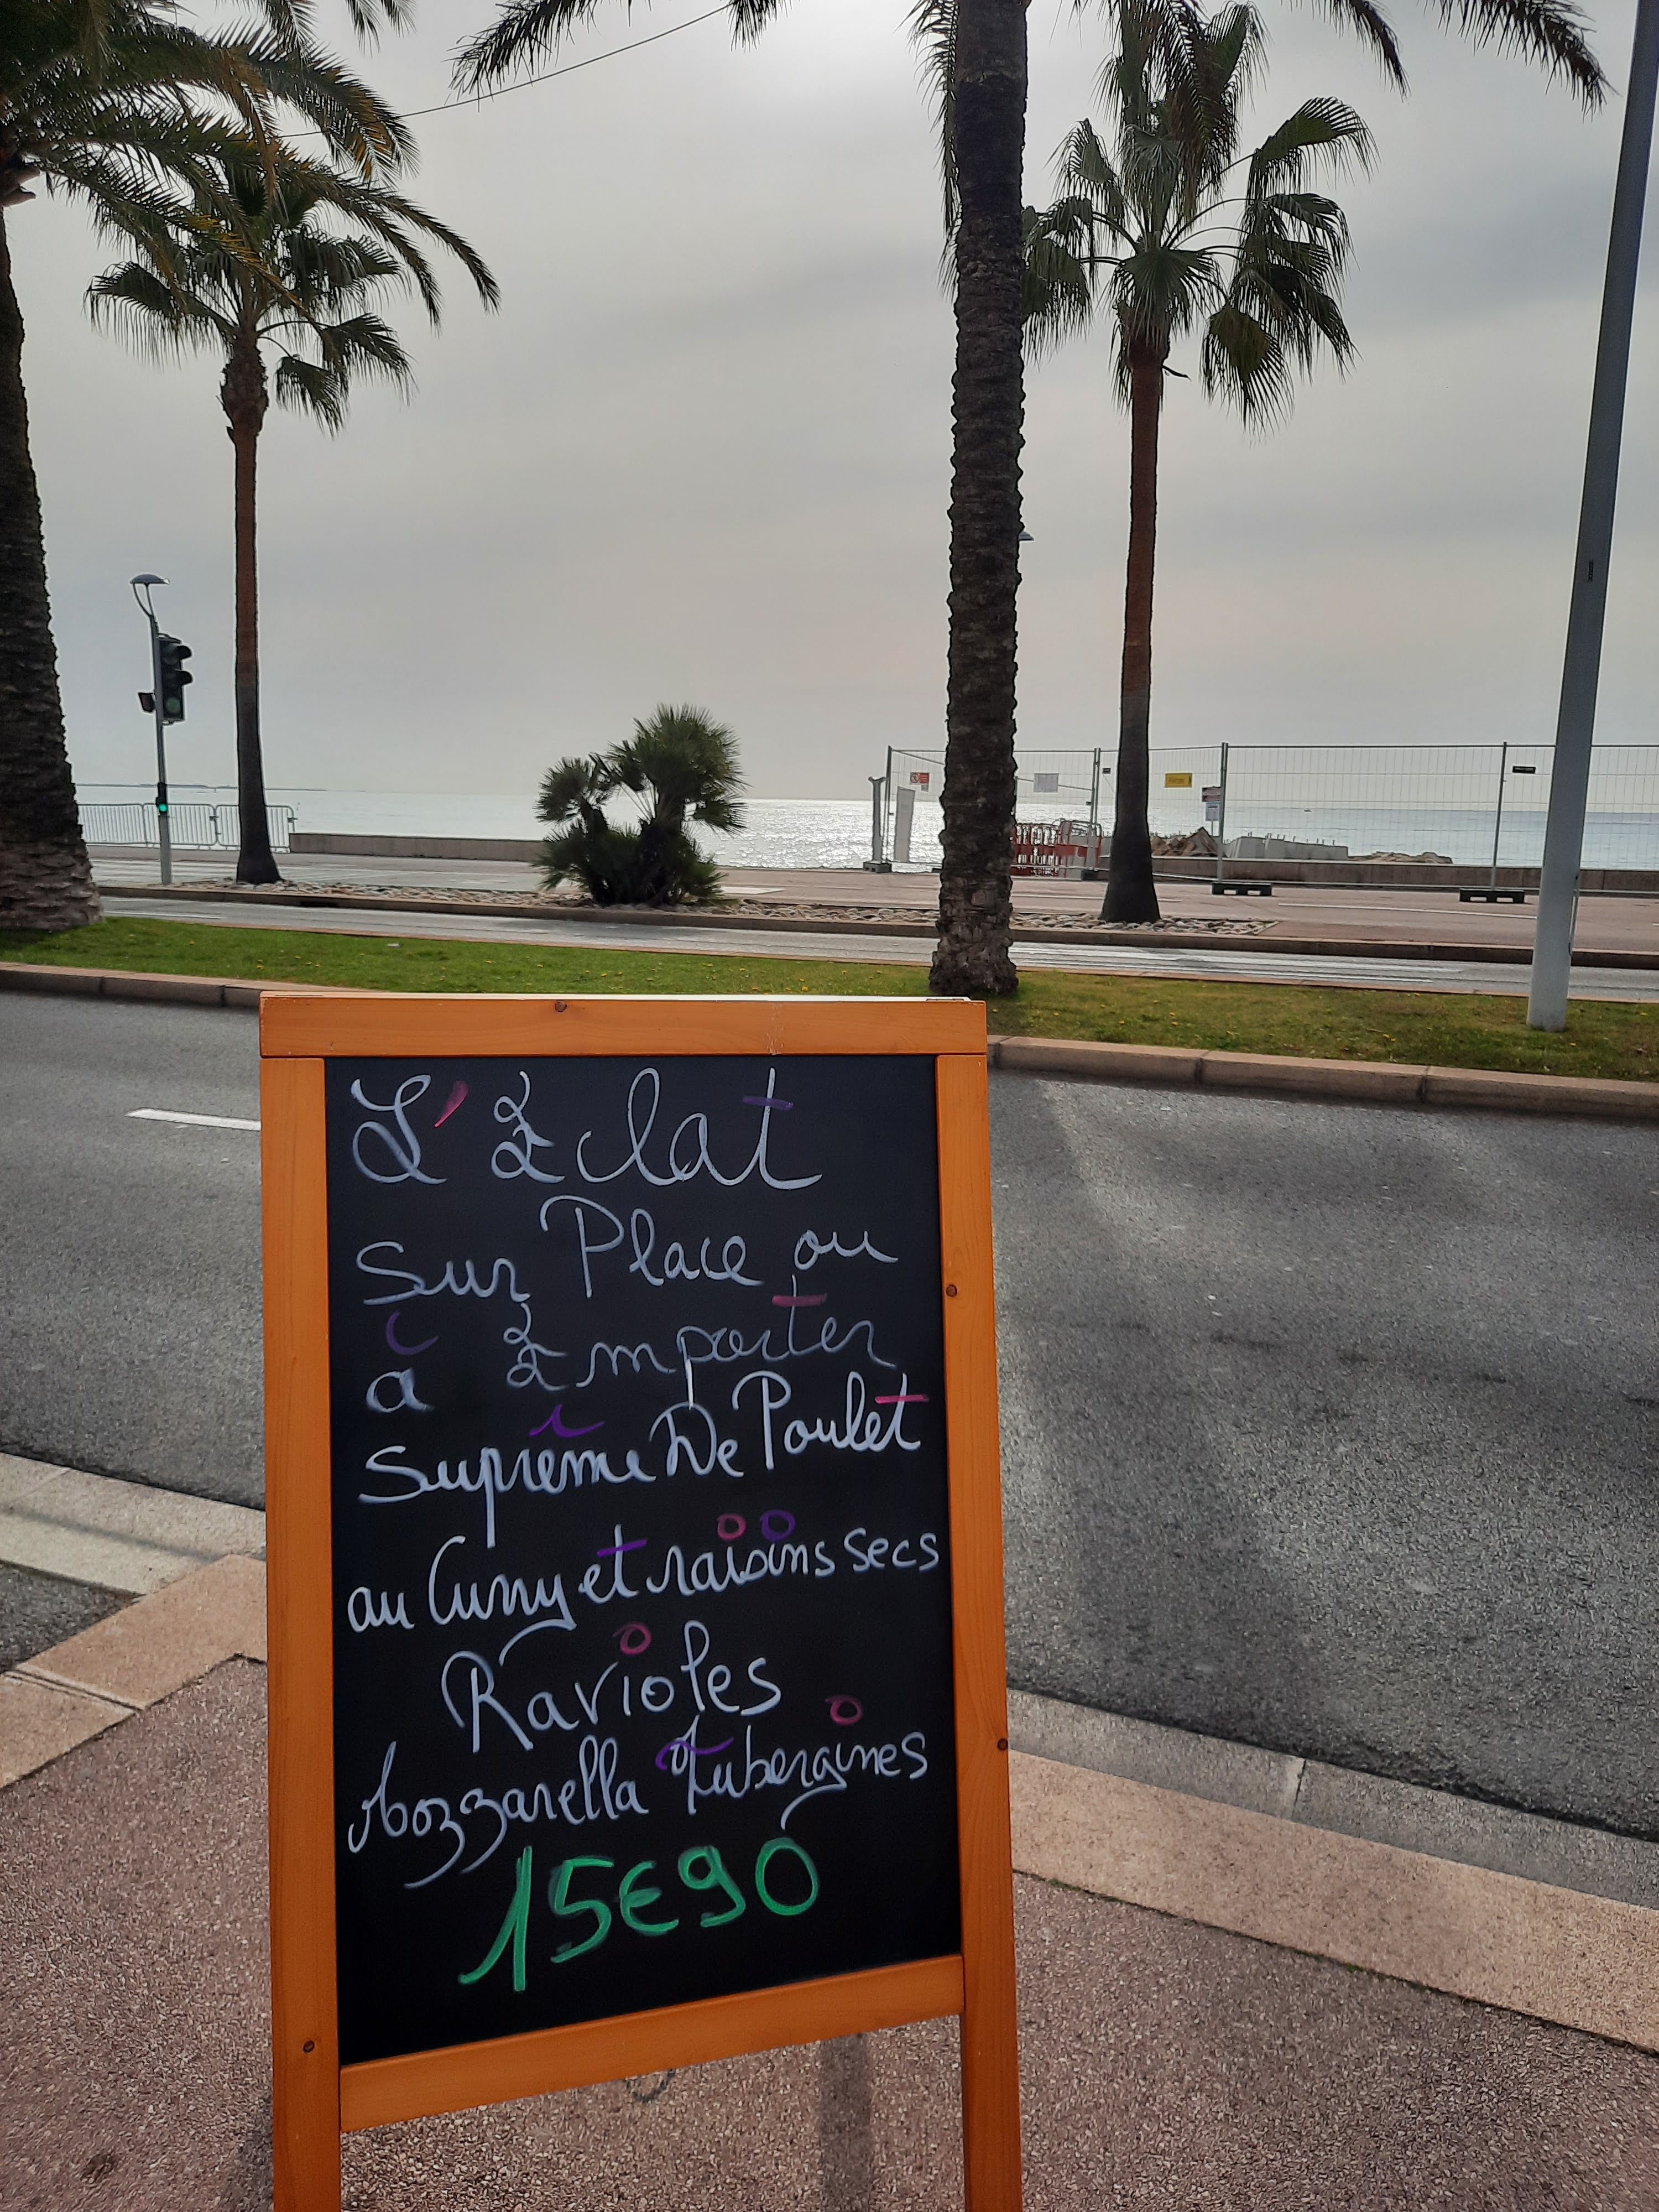 L'Eclat
Sur Place ou
à Emporter
Suprême De Poulet
au Curry et raisins secs
Ravioles
Mozzarella Aubergines
15€90